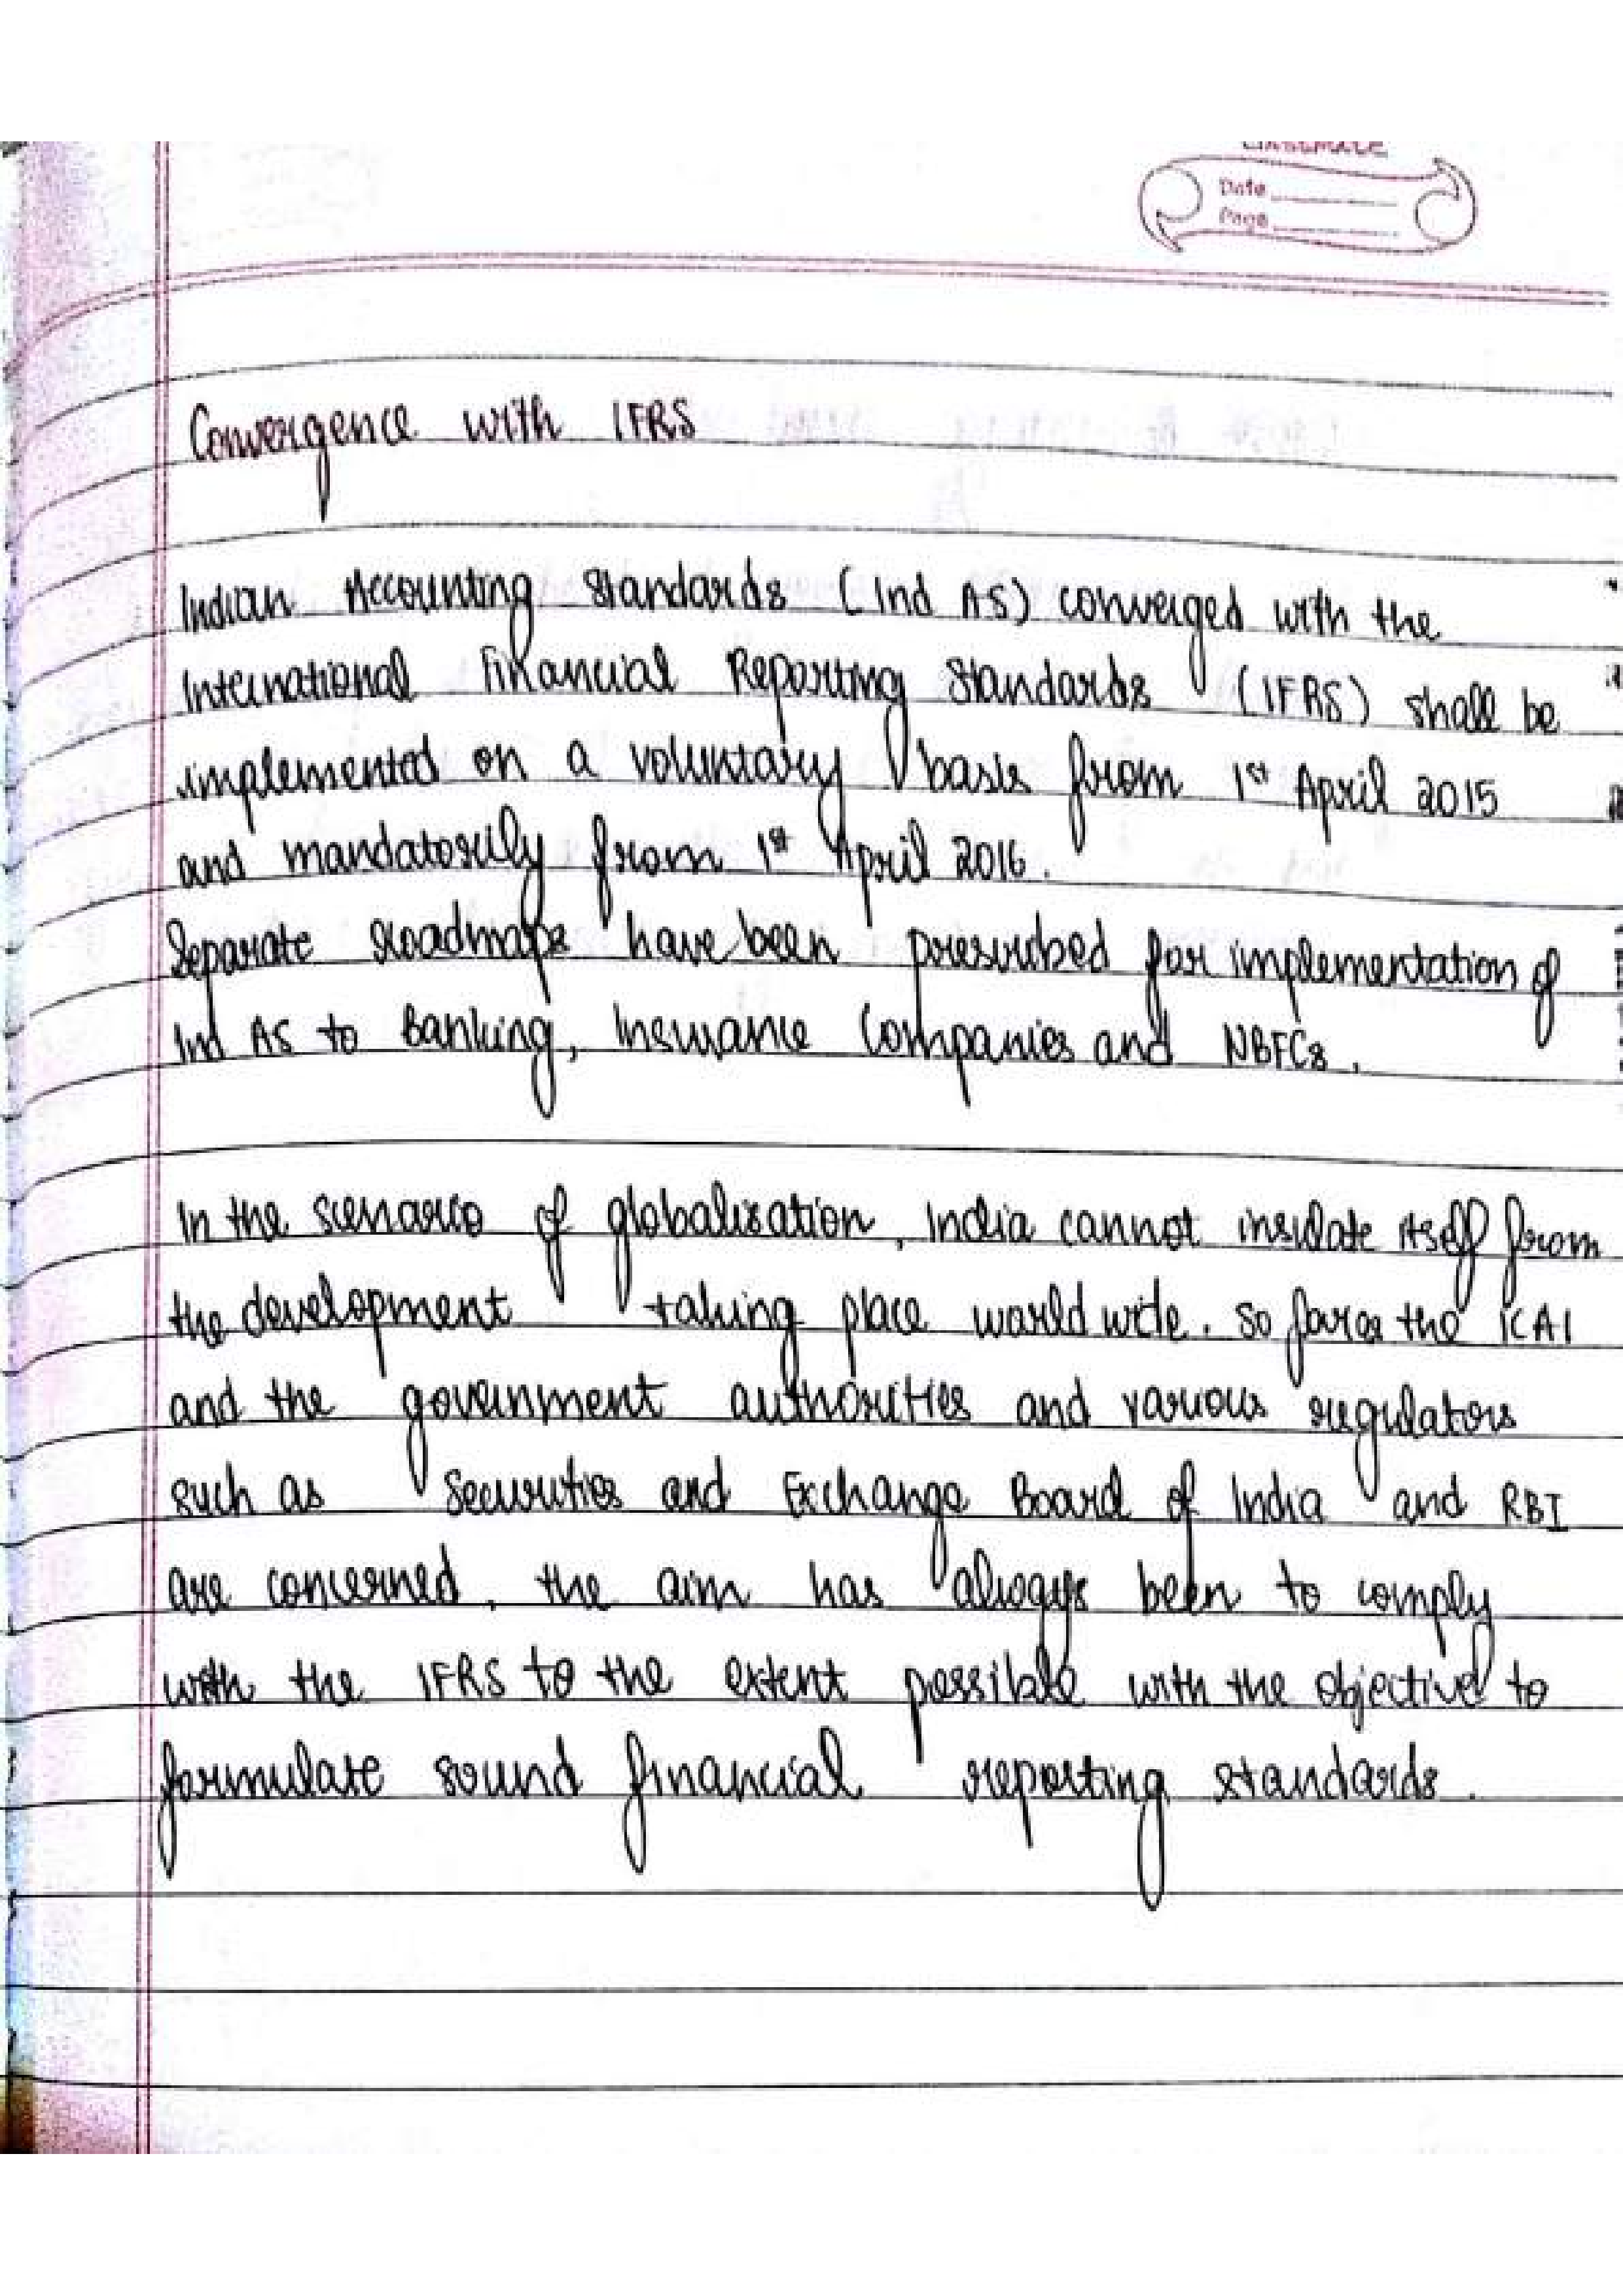 classmate
Date
Page
Convergence with IFRS
Indian Accounting Standards (Ind AS) converged with the
International Financial Reporting Standards (IFRS) shall be
implemented on a voluntary basis from 1st April 2015
and mandatorily from 1st April 2016.
Separate roadmaps have been prescribed for implementation of
Ind AS to Banking, Insurance Companies and NBFCs.
In the scenario of globalisation, India cannot insulate itself from
the development taking place world wide. So far as the ICAI
and the government authorities and various regulators
such as Securities and Exchange Board of India and RBI
are concerned, the aim has always been to comply
with the IFRS to the extent possible with the objective to
formulate sound financial reporting standards.